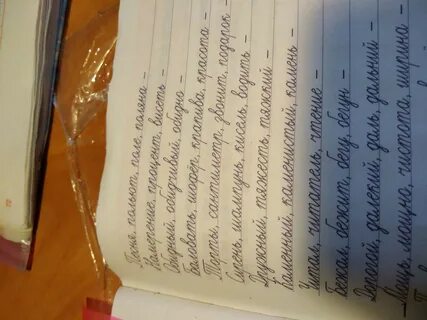 Песня, польют, поле, поляна –
Намерение, процент, висеть –
Обидный, обидчивый, обидно –
Баловать, шофёр, крапива, красота –
Торты, сантиметр, звонит, подарок –
Сирень, шампунь, кисель, водить –
Дружный, тяжесть, тяжкий –
Каменный, каменистый, камень –
Читал, читатель, чтение –
Бежал, бежит, бегу, бегун –
Дорогой, далекий, даль, дальний –
Мощь, мощно, чистота, ширина –